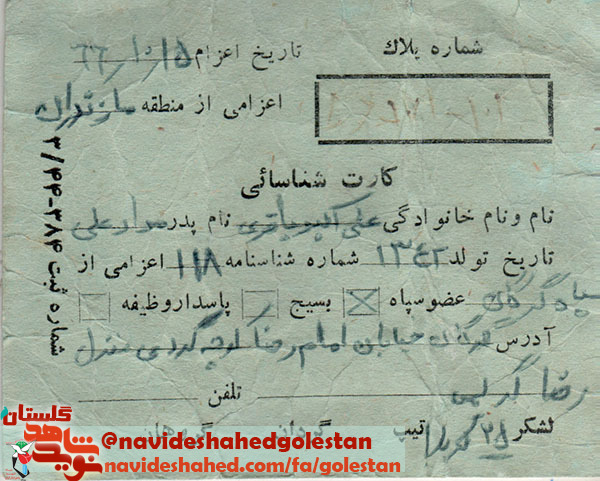 شماره پلاك
تاریخ اعزام ۶۶/۱۰/۱۵
اعزامی از منطقه مازندران
کارت شناسائی
نام ونام خانوادگی علی اکبر باقری نام پدر مراد علی
تاریخ تولد ۱۳۴۲ شماره شناسنامه ۱۱۸ اعزامی از
سپاه گرگان عضو سپاه بسیج پاسدار وظیفه
آدرس گرگان خیابان امام رضا کوچه منزل
رضا کریمی تلفن
لشکر ۲۵ کربلا تیپ گردان گروهان
شماره ثبت ۳۸۴-۳/۴۴
نوید شاهد گلستان
@navideshahedgolestan
navideshahed.com/fa/golestan